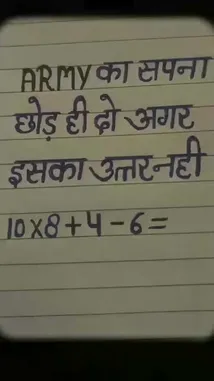 ARMY का सपना
छोड़ ही दो अगर
इसका उत्तर नही
10x8+4-6=